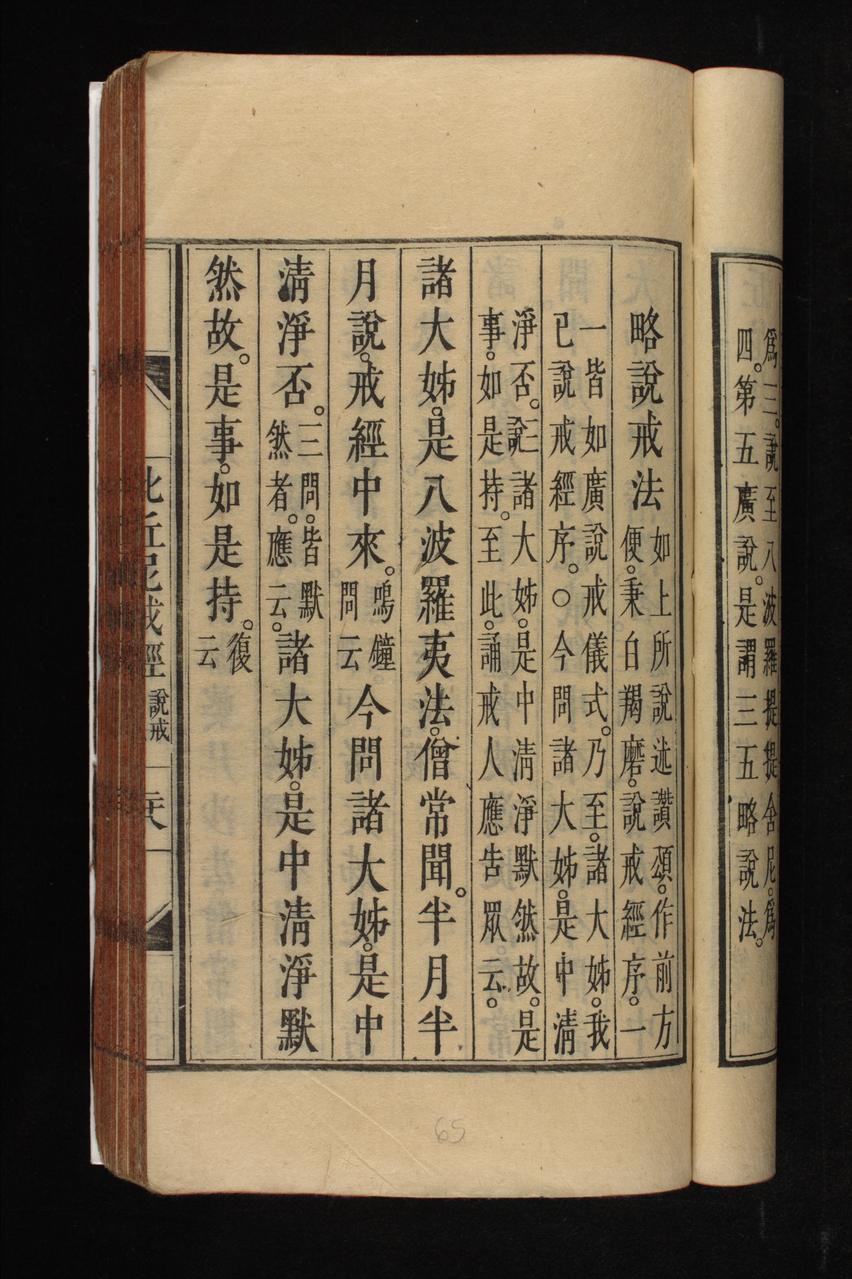 爲三。說至八波羅提提舍尼。爲
四。第五廣說。是謂三五略說法。
略說戒法
如上所說述讚頌。作前方
便。秉白羯磨。說戒經序。一
一皆如廣說戒儀式。乃至。諸大姊。我
已說戒經序。○今問諸大姊。是中清
淨否。三說諸大姊。是中清淨默然故。是
事。如是持。至此。誦戒人應告眾。云。
諸大姊。是八波羅夷法。僧常聞。半月半
月說。戒經中來。鳴鐘問云今問諸大姊。是中
清淨否。三問。皆默然者。應云。諸大姊。是中清淨默
然故。是事。如是持。復云
比丘尼戒經
說戒
六
65